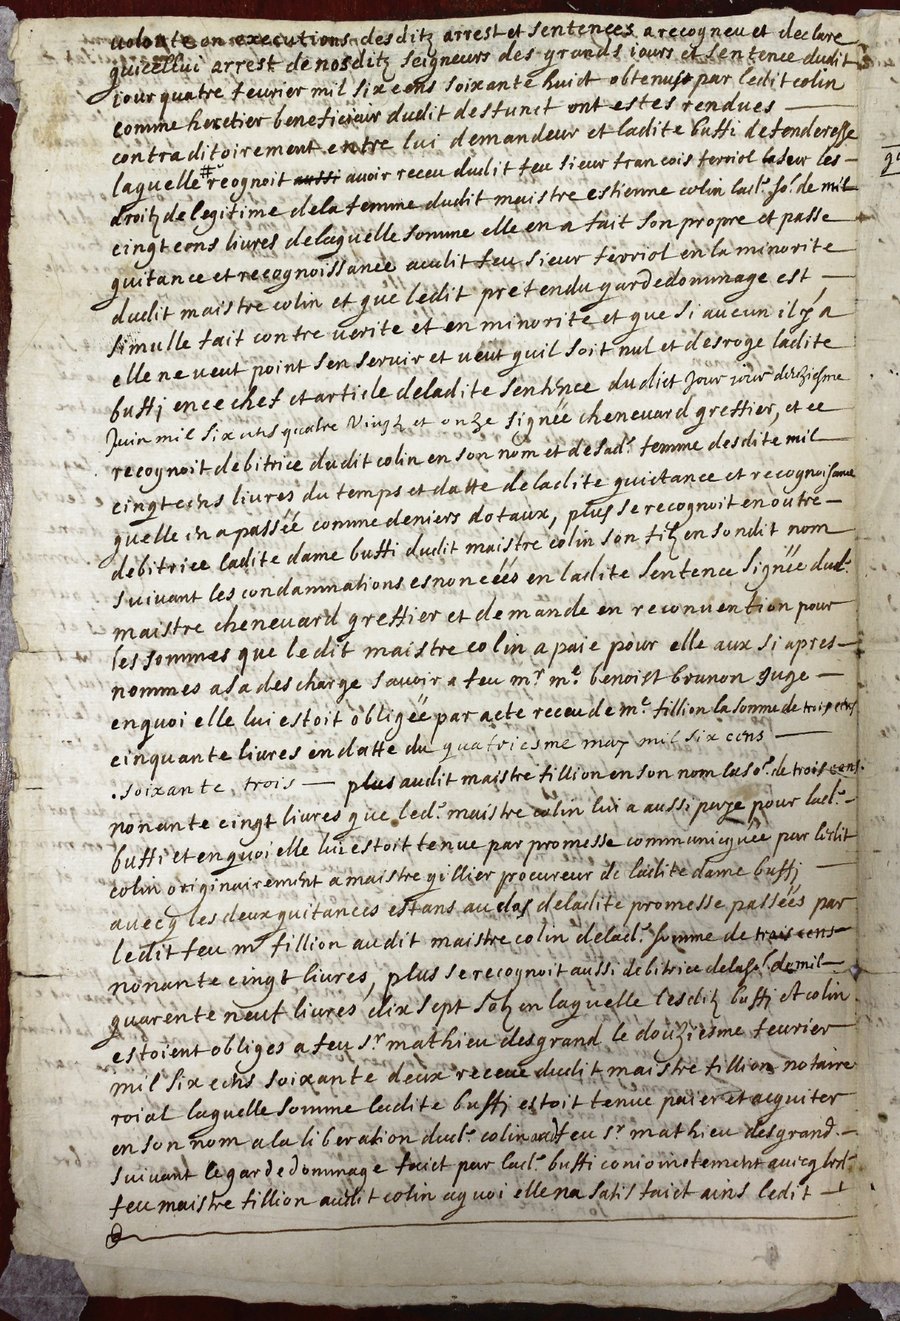 volonte en executions desditz arrest et sentences a recogneu et declare
quicellui arrest de nosditz seigneurs des grands iours et sentence dudit
iour quatre feurier mil six cens soixante huict obtenus par ledit colin
comme heretier beneficiair dudit desfunct ont estes rendues
contraditoirement entre lui demandeur et ladite buffi defenderesse
laquelle # recognoit aussi avoir receu dudit feu sieur francois ferriol la seur les
droitz de legitime de la femme dudit maistre estienne colin lad.e so.e de mil
cinq cens livres de laquelle somme elle en a fait son propre et passe
quitance et recognoissance audit feu sieur ferriol en la minorite
dudit maistre colin et que ledit pretendu gardedommage est
simulle fait contre verite et en minorite et que si aucun il y a
elle ne veut point sen servir et veut quil soit nul et desroge ladite
buffi en ce chef et article de ladite sentence dudict jour iour douziesme
Juin mil six cens quatre vingtz et onze signée chenevard greffier, et ce
recognoit debitrice dudit colin en son nom et de sad.e femme desdite mil
cinq cens livres du temps et datte de ladite quictance et recognoissance
quelle en a passée comme deniers dotaux, plus se recognoit en outre
debitrice ladite dame buffi dudit maistre colin son filz en sondit nom
suivant les condamnations esnoncéés en ladite sentence signée dud.
maistre chenevard greffier et demande en reconvention pour
les sommes que ledit maistre colin a paie pour elle aux si apres
nommes a sa descharge savoir a feu m.r m.e benoist brunon juge
en quoi elle lui estoit obligée par acte receu de m.e fillion la somme de trois cens
cinquante livres en datte du quatriesme may mil six cens
soixante trois plus audit maistre fillion en son nom la so.e de trois cens
nonante cinq livres que led. maistre colin lui a aussi paye pour lad.e
buffi et en quoi elle lui estoit tenue par promesse communicquée par ledit
colin originairement a maistre gillier procureur de ladite dame buffi
avecq les deux quitances estans au dos de ladite promesse passéés par
ledit feu m.e fillion audit maistre colin de lad.e somme de trois cens
nonante cinq livres, plus se recognoit aussi debitrice de la so.e de mil
quarente neuf livres dix sept solz en laquelle lesditz buffi et colin
estoient obliges a feu s.r mathieu desgrand le douziesme feurier
mil six cens soixante deux receue dudit maistre fillion notaire
roial laquelle somme ladite buffi estoit tenue paier et acquiter
en son nom a la liberation dud. colin aud feu s.r mathieu desgrand
suivant le gardedommage faict par lad.e buffi coniointement avecq led.
feu maistre fillion audit colin a quoi elle na satisfaict ains ledit